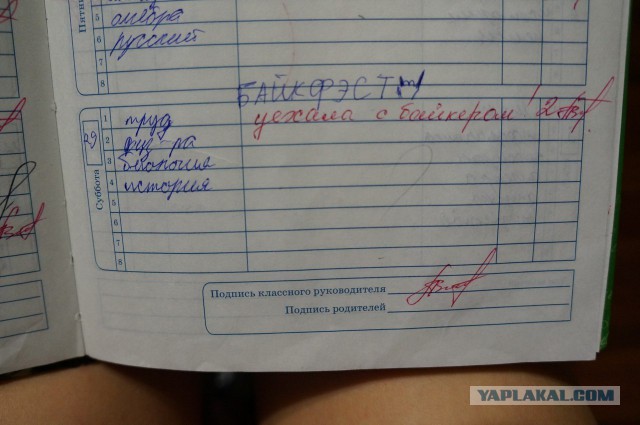 Пятни
5 алгебра
6 русский
7
8
БАЙКФЭСТ
Суббота
29
1 труд уехала с байкером! 2
2 физ-ра
3 биология
4 история
5
6
7
8
Подпись классного руководителя
Подпись родителей
YAPLAKAL.COM